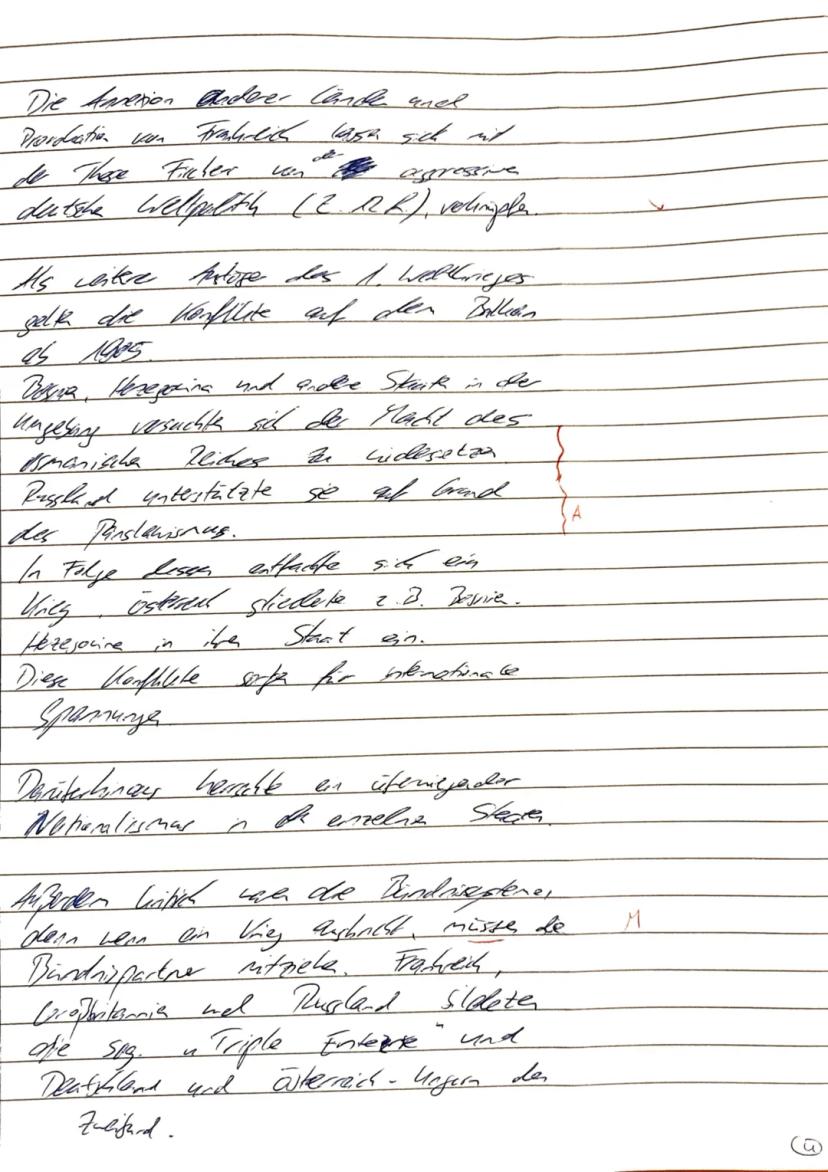 Die Annexion anderer Länder und
Provokation von Frankreich lassen sich mit
der These Fischer von der aggressiven
deutschen Weltpolitik (Z. 12 f.), verknüpfen.
Als weitere Auslöser des 1. Weltkrieges
gelten die Konflikte auf dem Balkan
ab 1905.
Bosnien, Herzegowina und andere Staaten in der
Umgebung versuchten sich der Macht des
osmanischen Reiches zu widersetzen
Russland unterstützte sie auf Grund
des Panslawismus.
In Folge dessen entfachte sich ein
Krieg, Österreich gliederte z.B. Bosnien-
Herzegowina in ihren Staat ein.
A
Diese Konflikte sorgten für internationale
Spannungen
Darüberhinaus herrschte ein überwiegender
Nationalismus in den einzelnen Staaten.
Außerdem kritisch waren die Bündnissysteme,
denn wenn ein Krieg ausbricht, müssen die
M
Bündnispartner mitziehen. Frankreich,
Großbritannien und Russland bildeten
die sog. "Triple Entente" und
Deutschland und Österreich-Ungarn den
Zweibund.
4